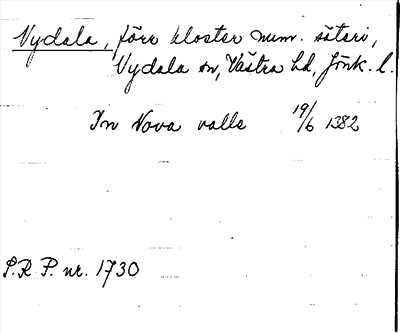 Nydala, förr kloster num. säteri,
Nydala sn, Västra hd, Jönk. l.
In Nova valle 19/6 1382
S.R.P. nr. 1730